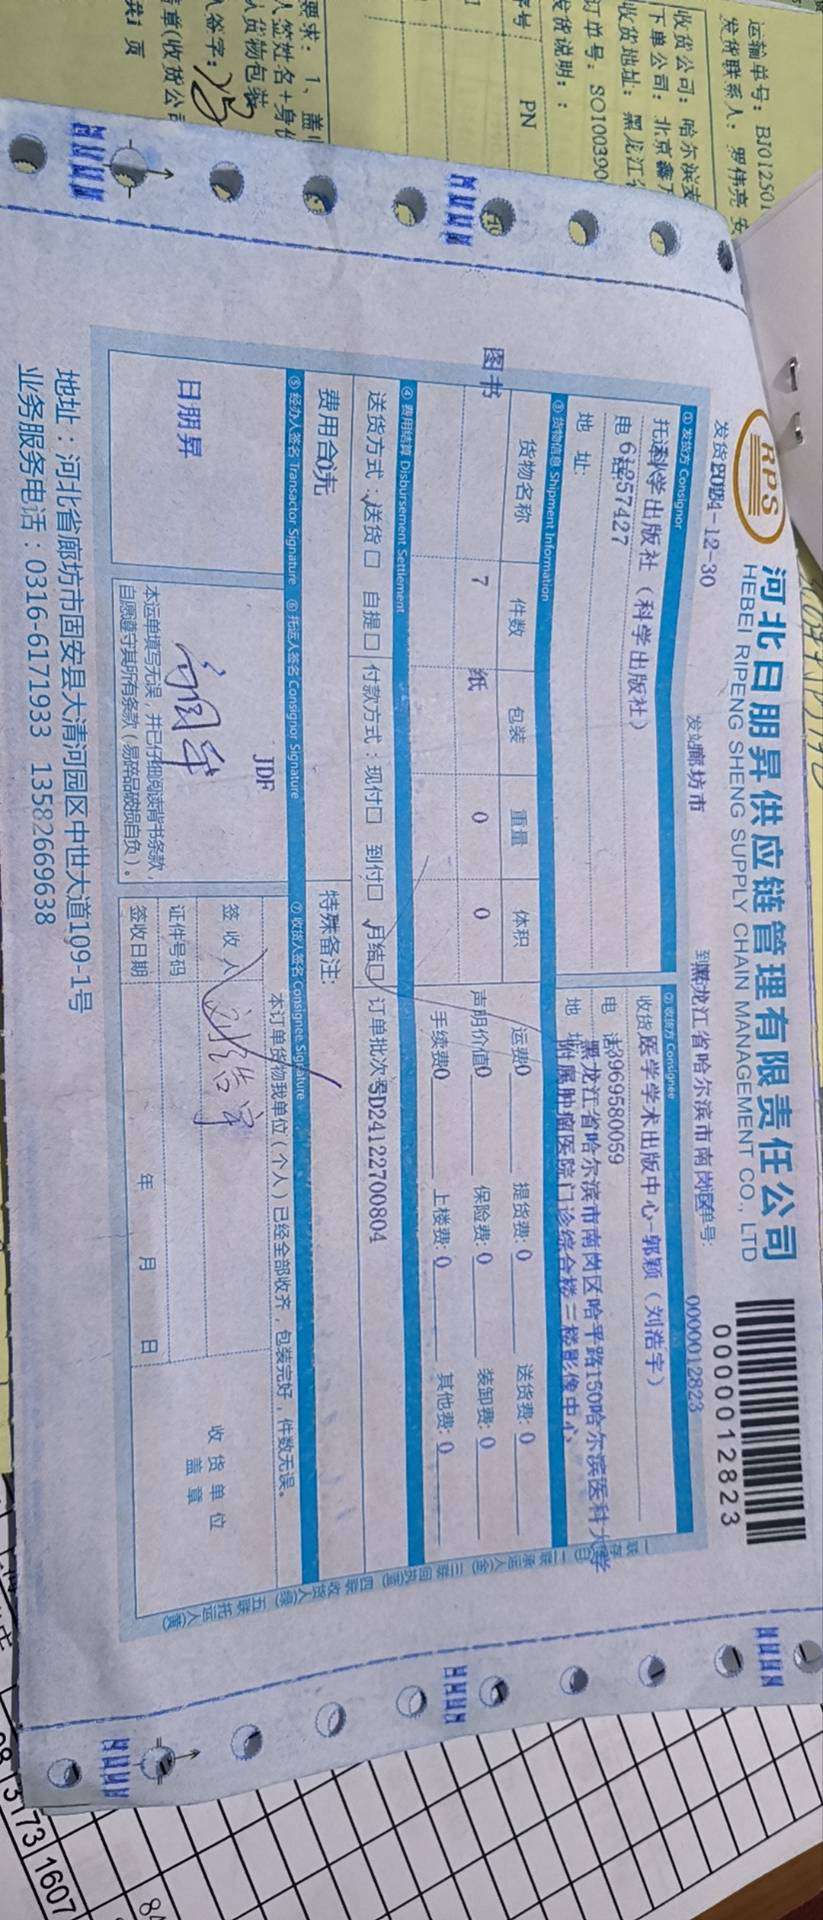 运输单号：BJ012501
发货联系人：罗伟亮 安
收货公司：哈尔滨
下单公司：北京鑫
收货地址：黑龙江省
订单号：SO100390
发货说明：：
序号 PN
要求：1、盖
人签姓名+身份
人货物包装
人签字：
章(收货公司
共1 页
RPS
河北日朋昇供应链管理有限责任公司
HEBEI RIPENG SHENG SUPPLY CHAIN MANAGEMENT CO., LTD
0000012823
发货 2024-12-30 发站 廊坊市 到 黑龙江省哈尔滨市南岗区 单号: 0000012823
① 发货方 Consignor
托运 科学出版社（科学出版社）
电话 57427
地 址:
② 收货方 Consignee
收货 医学学术出版中心-郭颖（刘浩宇）
电 话 13969580059
地 址 黑龙江省哈尔滨市南岗区哈平路150哈尔滨医科大学
附属肿瘤医院门诊综合楼三楼影像中心
③ 货物信息 Shipment Information
货物名称 件数 包装 重量 体积
图书 7 纸 0 0
运费 0 提货费: 0 送货费: 0
声明价值 0 保险费: 0 装卸费: 0
手续费 0 上楼费: 0 其他费: 0
④ 费用结算 Disbursement Settlement
送货方式：✓送货□ 自提□ 付款方式：现付□ 到付□ ✓月结□ 订单批次号 SD24122700804
费用合 0元 特殊备注:
⑤ 经办人签名 Transactor Signature ⑥ 托运人签名 Consignor Signature ⑦ 收货人签名 Consignee Signature
日朋昇
JDF
本运单填写无误，并已仔细阅读背书条款，
自愿遵守其所有条款（易碎品破损自负）。
本订单货物我单位（个人）已经全部收齐，包装完好，件数无误。
签 收 人 刘浩宇
证件号码
签收日期 年 月 日
收 货 单 位
盖 章
一联存根(白) 二联承运人(金) 三联回执(蓝) 四联收货人(绿) 五联托运人(黄)
地址：河北省廊坊市固安县大清河园区中世大道109-1号
业务服务电话：0316-6171933 13582669638
173 1607